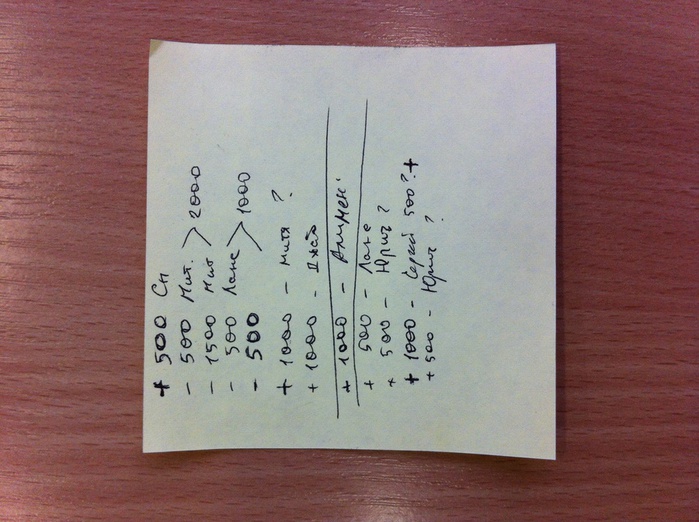 + 500 Сн
- 500 Мит. > 2000
- 1500 Мит
- 500 Лане > 1000
- 500
+ 1000 - Митя ?
+ 1000 - Джао
+ 1000 -
+ 500 - Лане
+ 500 - Юрич ?
+ 1000 - Сергей 500? +
+ 500 - Юрич ?